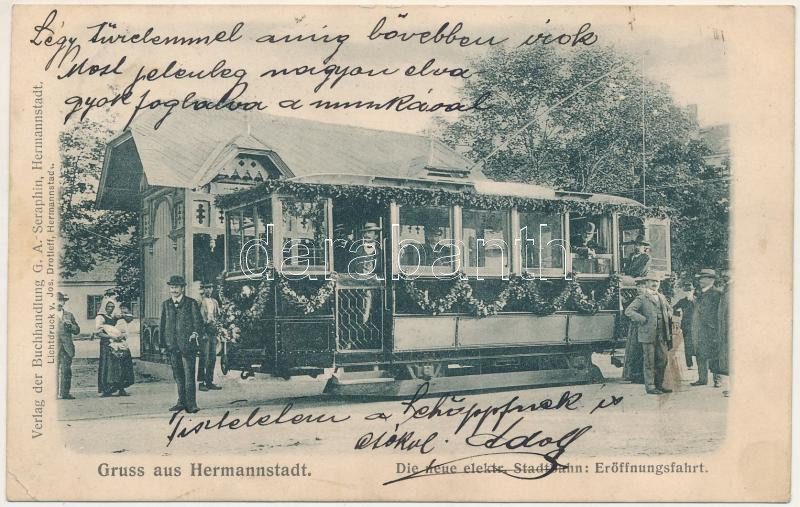 Légy türelemmel amíg bővebben írok
Most jelenleg nagyon elva
gyok foglalva a munkával
Verlag der Buchhandlung G. A. Seraphin, Hermannstadt.
Lichtdruck v. Jos. Drotleff, Hermannstadt.
darabanth
Tisztelem a Schäppfnek is
csókol Adolf
Gruss aus Hermannstadt.
Die neue elektr. Stadtbahn: Eröffnungsfahrt.